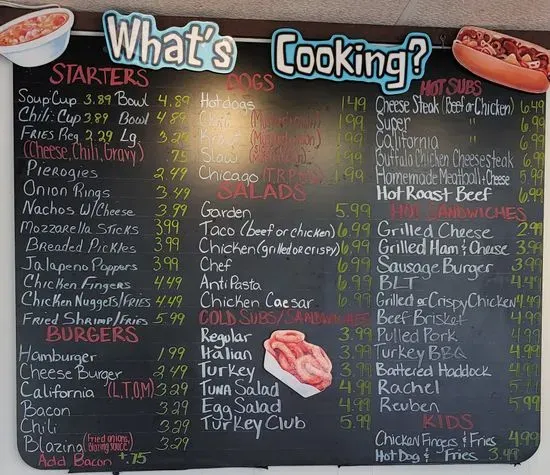 What's Cooking?
STARTERS
Soup: Cup 3.89 Bowl 4.89
Chili: Cup 3.89 Bowl 4.89
FRIES Reg 2.29 Lg 3.29
(Cheese, Chili, Gravy) .75
Pierogies 2.49
Onion Rings 3.49
Nachos W/Cheese 3.99
Mozzarella Sticks 3.99
Breaded Pickles 3.99
Jalapeno Poppers 3.99
Chicken Fingers 4.49
Chicken Nuggets/Fries 4.49
Fried Shrimp/Fries 5.99
BURGERS
Hamburger 1.99
Cheese Burger 2.49
California (L,T,O,M) 3.29
Bacon 3.29
Chili 3.29
Blazing (Fried onions, Blazing sauce) 3.29
Add Bacon +.75
DOGS
Hotdogs 1.49
1.99
1.99
Slaw 1.99
Chicago 1.99
SALADS
Garden 5.99
Taco (beef or chicken) 6.99
Chicken (grilled or crispy) 6.99
Chef 6.99
AntiPasta 6.99
Chicken Caesar 6.99
COLD SUBS/SANDWICHES
Regular 3.99
Italian 3.99
Turkey 3.99
Tuna Salad 4.99
Egg Salad 4.99
Turkey Club 5.99
HOT SUBS
Cheese Steak (Beef or Chicken) 6.49
Super " 6.99
California " 6.99
Buffalo Chicken Cheesesteak 6.99
Homemade Meatball + Cheese 5.99
Hot Roast Beef 6.99
HOT SANDWICHES
Grilled Cheese 2.99
Grilled Ham & Cheese 3.99
Sausage Burger 3.99
BLT 4.49
Grilled or Crispy Chicken 4.49
Beef Brisket 4.99
Pulled Pork 4.99
Turkey BBQ 4.99
Battered Haddock 4.99
Rachel
Reuben 5.99
KIDS
Chicken Fingers & Fries 4.99
Hot Dog & Fries 3.49